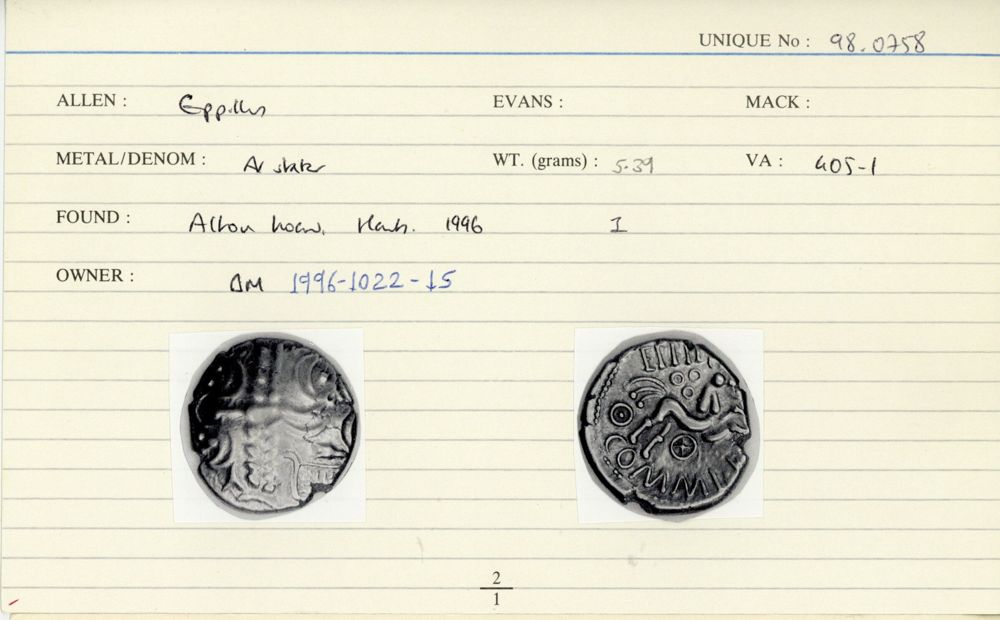 UNIQUE No : 98.0758
ALLEN : Eppillus EVANS : MACK :
METAL/DENOM : AV stater WT. (grams) : 5.39 VA : 405-1
FOUND : Alton hoard, Hants. 1996 I
OWNER : BM 1996-1022-15
COMMI
2
1